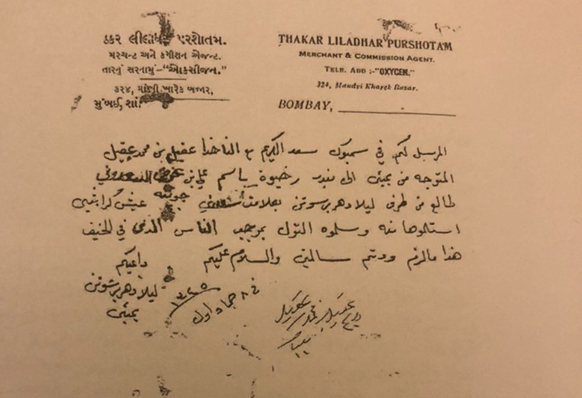 ઠકર લીલાધર પરશોતમ.
મરચન્ટ અને કમીશન એજન્ટ.
તારનું સરનામું-"ઓકસીજન."
૩૨૪, માંડવી ખારેક બજાર,
મુંબઈ તા.
THAKAR LILADHAR PURSHOTAM
MERCHANT & COMMISSION AGENT.
TELE. ADD :-"OXYGEN."
324, Mandvi Kharek Bazar.
BOMBAY,
المرسل لكم في سنبوك سعد الكريم مع الناخدا عقيل بن محمد عقيل
المتوجه من بمبئ الى بندر باسم علي بن عوض
طالع من طرف ليلادهر برسوتن بعلامة جونيه عيش
استلموها منه وسلموه النول بموجب الناس الذي في
هذا مالزم ودمتم سالمين والسلام عليكم
داعيكم
ليلادهر برسوتن
بمبئ
جماد اول ١٣٦٥
عقيل بن محمد عقيل